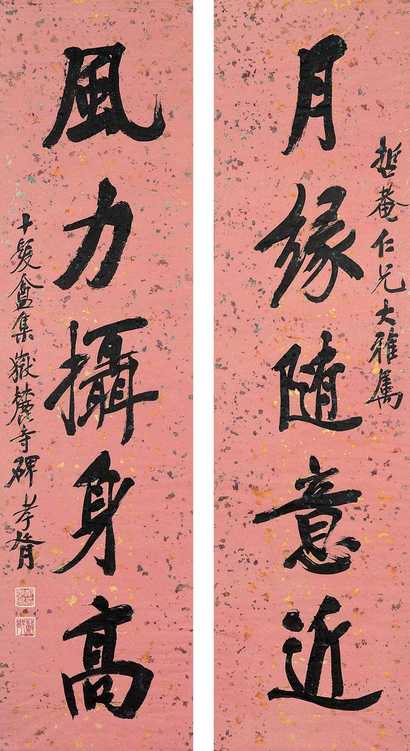 哲菴仁兄大雅屬
月緣随意近
風力攝身高
十髮盦集嶽麓寺碑 孝胥